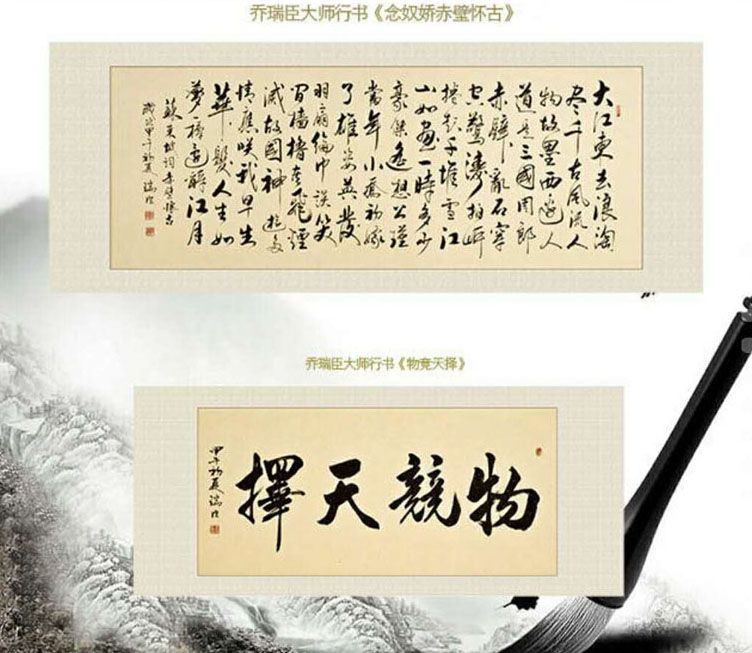 乔瑞臣大师行书《念奴娇赤璧怀古》
大江東去浪淘
盡千古風流人
物故壘西邊人
道是三國周郎
赤壁亂石穿
空驚濤拍岸
捲起千堆雪江
山如畫一時多少
豪傑遙想公瑾
當年小喬初嫁
了雄姿英發
羽扇綸巾談笑
間檣櫓灰飛煙
滅故國神遊多
情應笑我早生
華髮人生如
夢一樽還酹江月
蘇東坡詞赤壁懷古
歲次甲午初夏瑞臣
乔瑞臣大师行书《物竟天择》
物競天擇
甲午初夏瑞臣